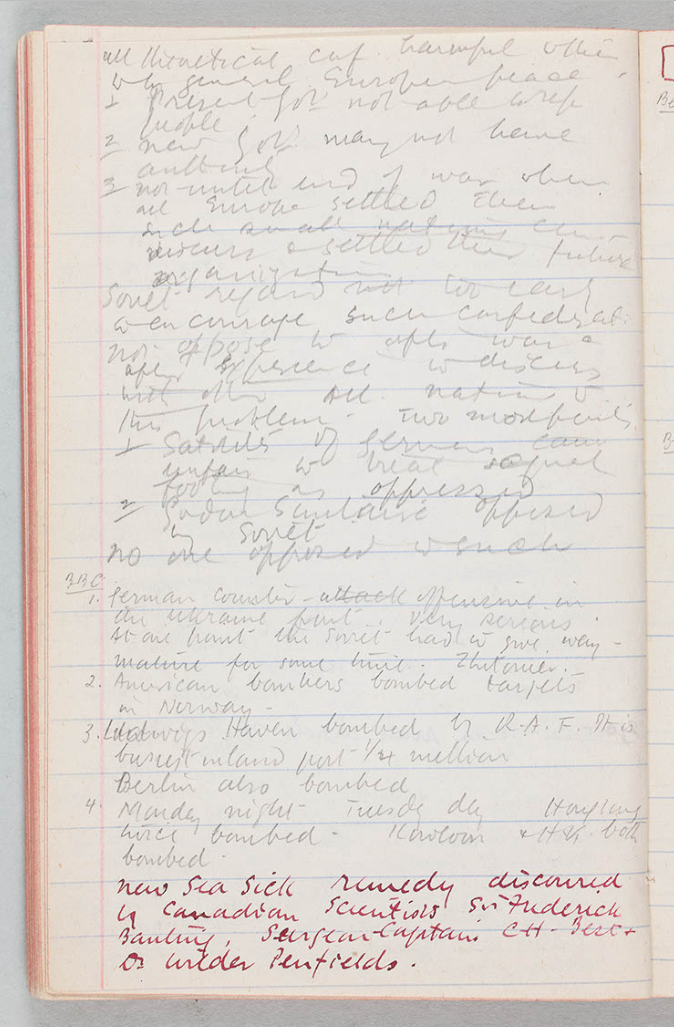 all theoretical conf. harmful
general European peace
1 Present Govt not able to rep
people
2 new Govt may not have
authority
3 not until end of war when
all Europe settled then
such small nations can
discuss & settled their future
organization
Soviet regard too early
to encourage such confederat:
not oppose to after war &
after experience to discuss
with other All. nations
this problem. Two
1 Satelites of Germany
unfair to treat equal
footing as oppressed
2 opposed
by Soviet
no one opposed to such
BBC
1. German counter-attack offensive in
the Ukraine front. very serious.
At one point the Soviet had to give way -
mature for some time. Zhitomir.
2. American bombers bombed targets
in Norway -
3. Ludwigs Haven bombed by R.A.F. It is
busiest inland port 1/4 million
Berlin also bombed
4. Monday night Tuesday day Hongkong
twice bombed - Kowloon & H.K. both
bombed.
new Sea Sick remedy discovred
by Canadian Scientists Sir Frederick
Banting, Surgeon-Captain CH. Best &
Dr Wilder Penfields.